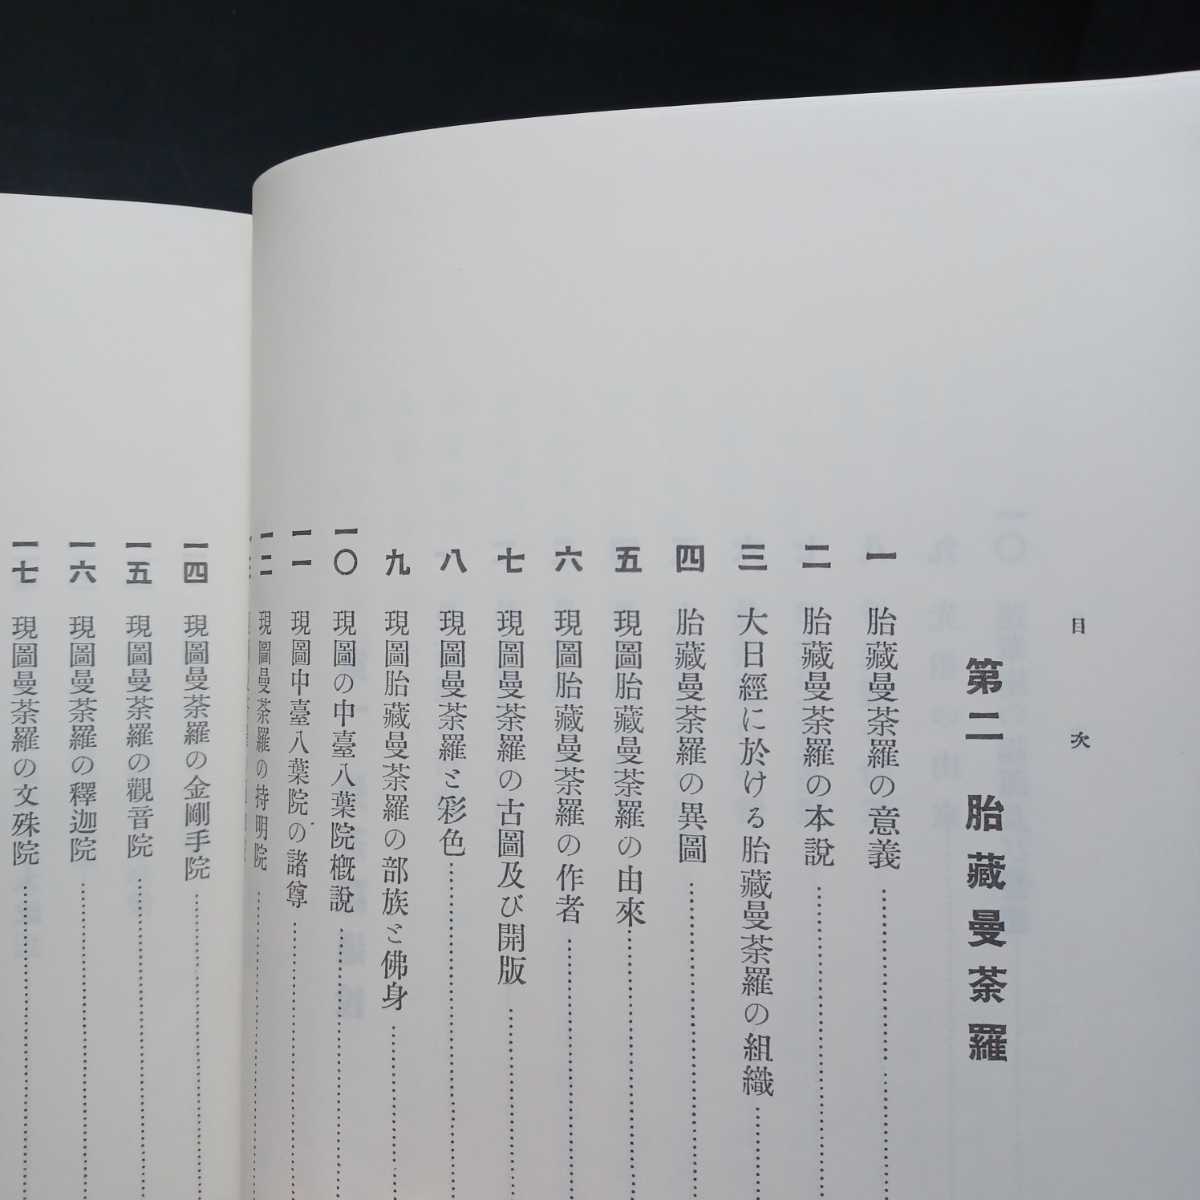 目次
第二 胎藏曼荼羅
一 胎藏曼荼羅の意義
二 胎藏曼荼羅の本説
三 大日經に於ける胎藏曼荼羅の組織
四 胎藏曼荼羅の異圖
五 現圖胎藏曼荼羅の由來
六 現圖胎藏曼荼羅の作者
七 現圖曼荼羅の古圖及び開版
八 現圖曼荼羅と彩色
九 現圖胎藏曼荼羅の部族と佛身
一〇 現圖の中臺八葉院概說
一一 現圖中臺八葉院の諸尊
一二 現圖曼荼羅の持明院
一四 現圖曼荼羅の金剛手院
一五 現圖曼荼羅の觀音院
一六 現圖曼荼羅の釋迦院
一七 現圖曼荼羅の文殊院